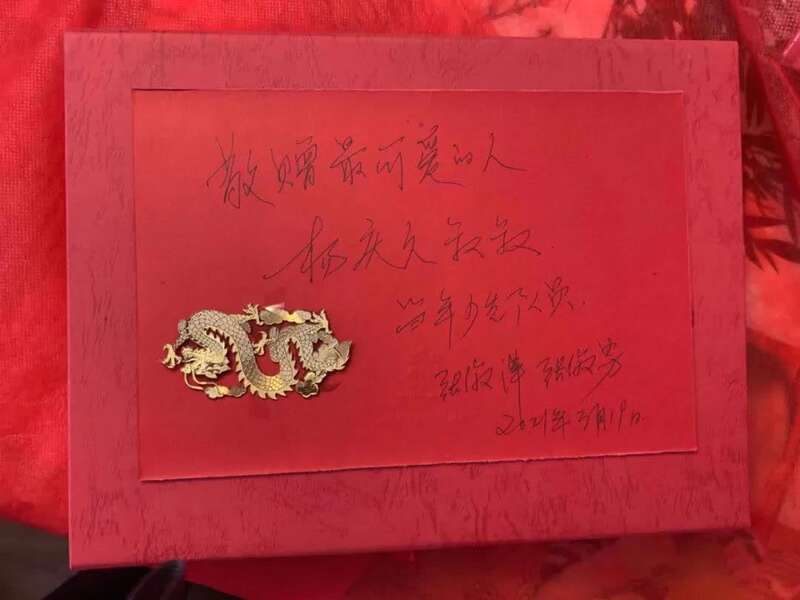 敬赠最可爱的人
杨庆久叔叔
当年少先队员
张淑萍 张淑芳
2021年3月19日